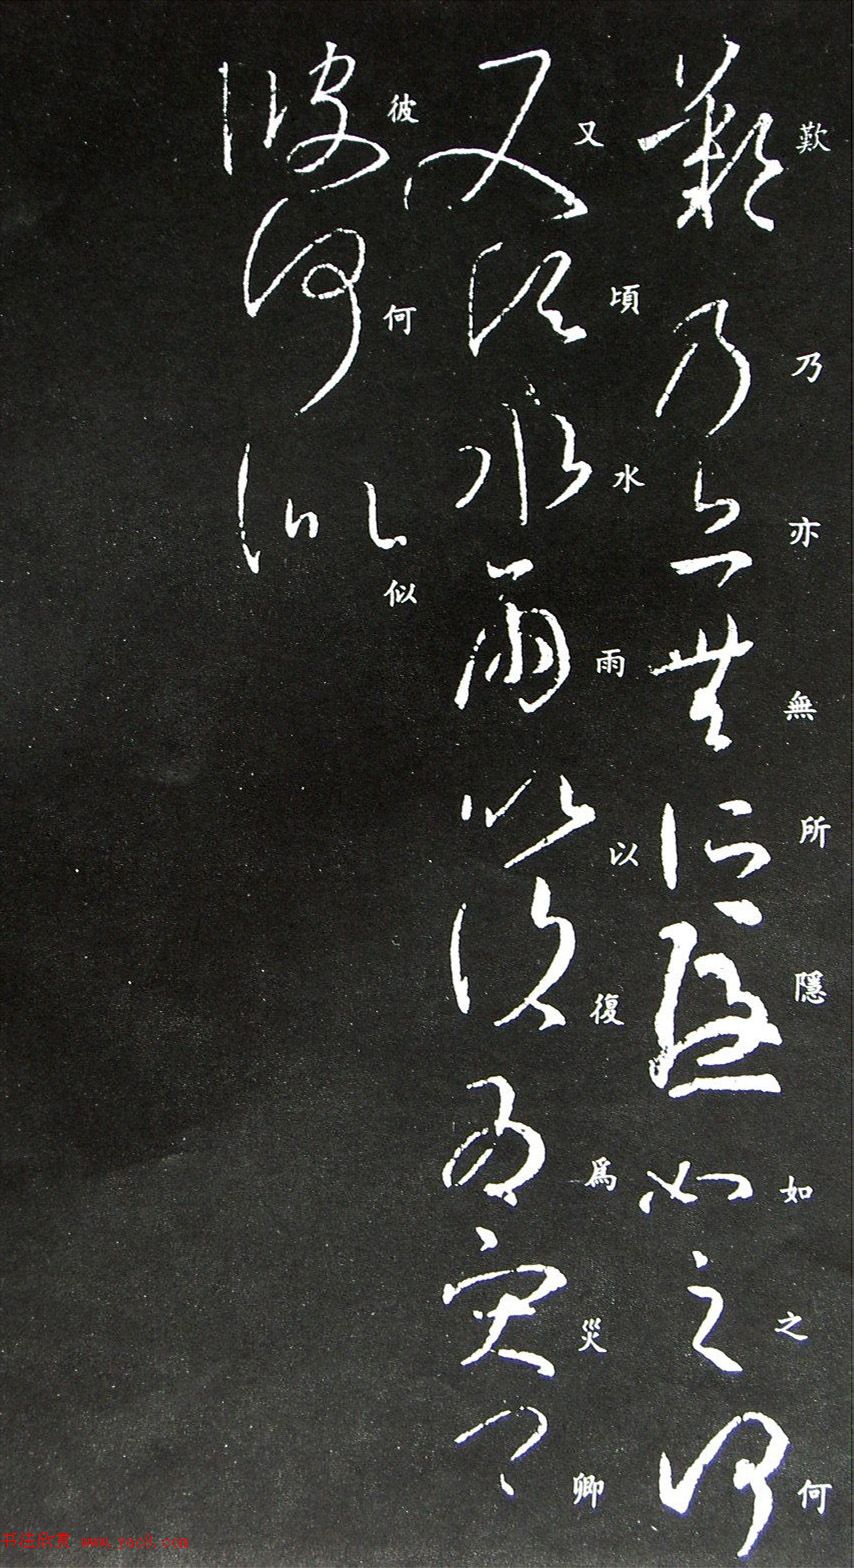 歎乃亦無所隱如之何
又頃水雨以復為災卿
彼何似
书法欣赏 www.yac8.com